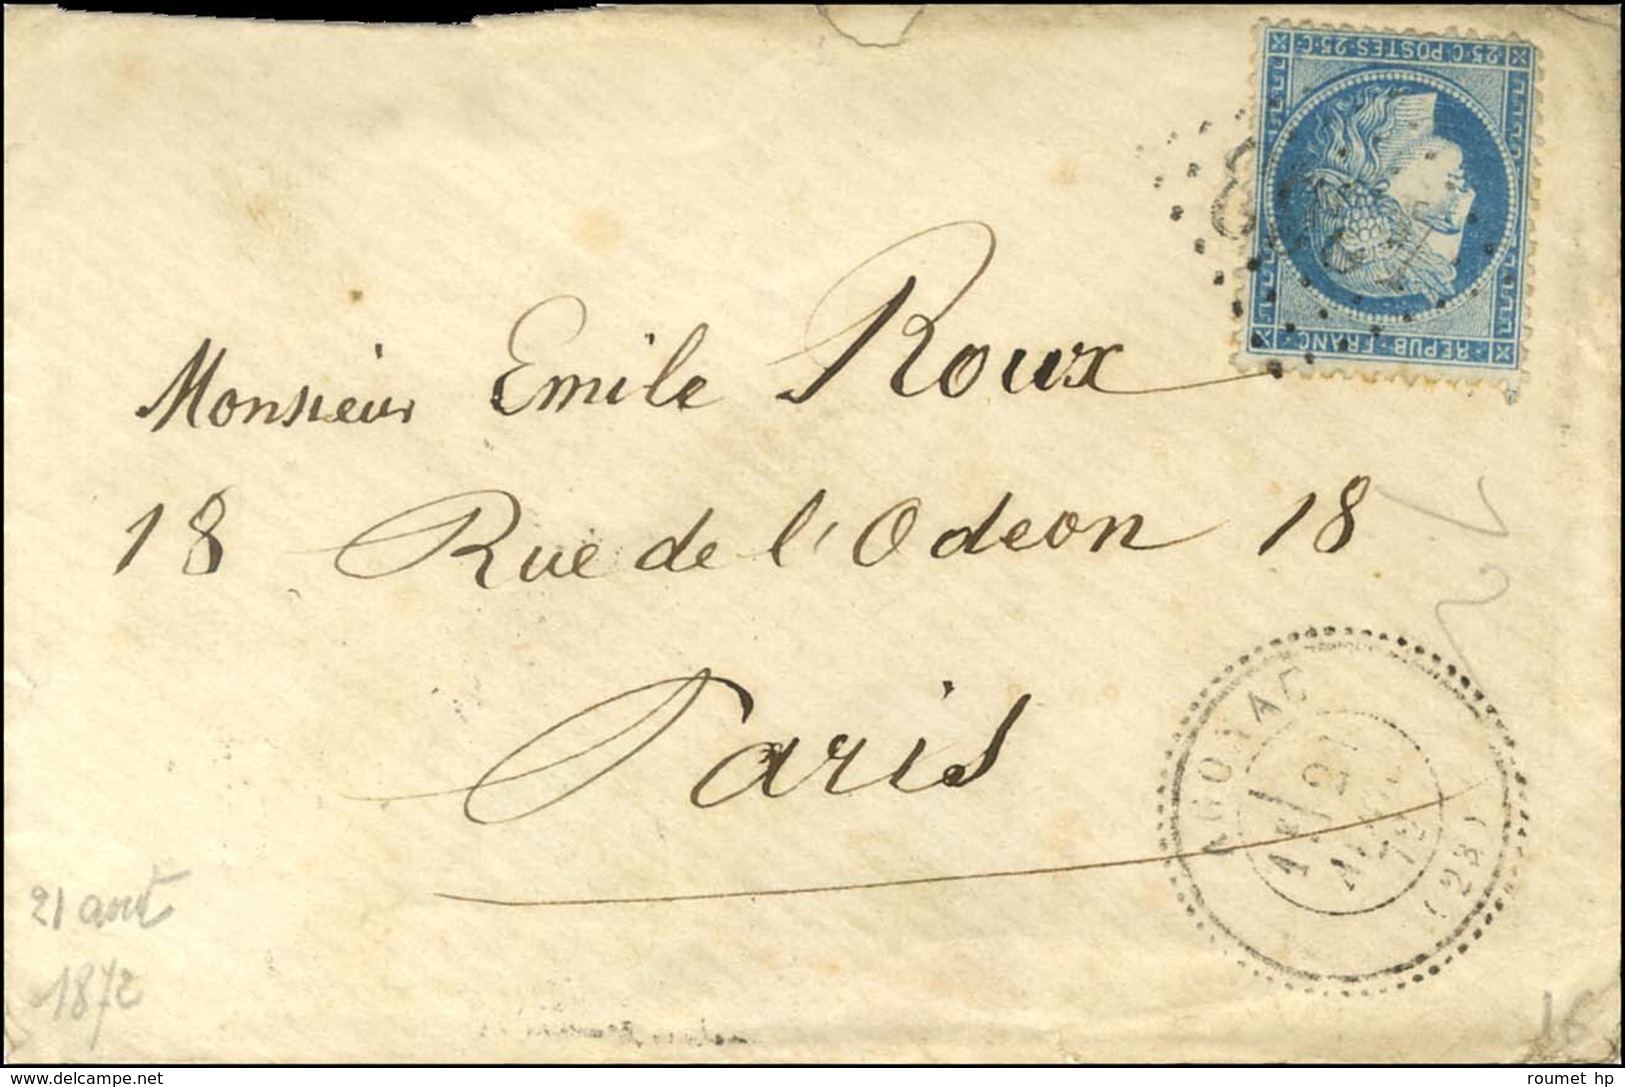 25·C·POSTES·25·C
REPUB·FRANC·
Monsieur Emile Roux
18 Rue de l'Odeon 18
Paris
AGONAC
1E
21
AOUT
72
(23)
21 aout
1872
16
delcampe.net
roumet hp